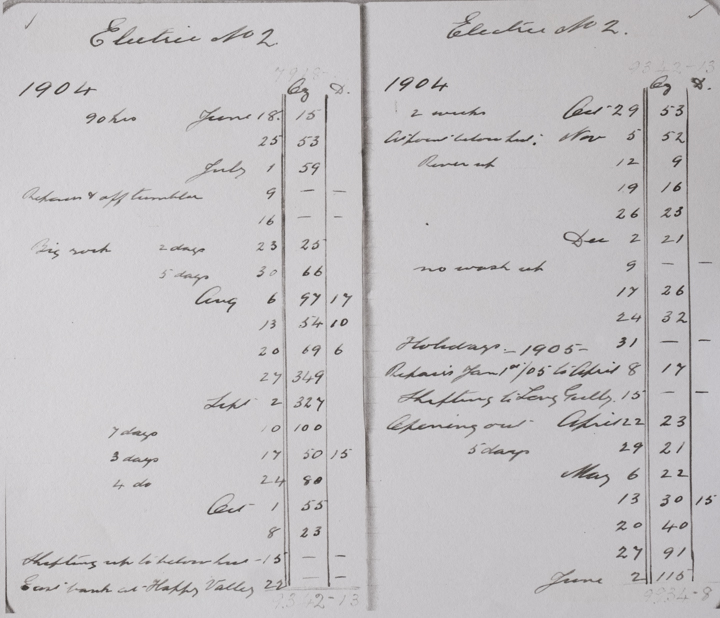 Electric No 2
1904 Oz D.
90 hrs June 18. 15
25 53
July 1 59
Repairs & off tumbler 9 — —
16 — —
Big rock 2 days 23 25
5 days 30 66
Aug 6 97 17
13 54 10
20 69 6
27 349
Sept 2 327
7 days 10 100
3 days 17 50 15
4 do 24 80
Oct 1 55
8 23
Shifting up to below hut - 15 — —
East bank at Happy Valley 22 — —
9342-13
Electric No 2.
9342-13
1904 Oz D.
2 weeks Oct 29 53
below hut. Nov 5 52
River up 12 9
19 16
26 23
Dec 2 21
no wash up 9 — —
17 26
24 32
Holidays - 1905 - 31 — —
Repairs Jan 1st/05 to April 8 17
Shifting to Long Gully. 15 — —
Opening out April 22 23
5 days 29 21
May 6 22
13 30 15
20 40
27 91
June 2 115